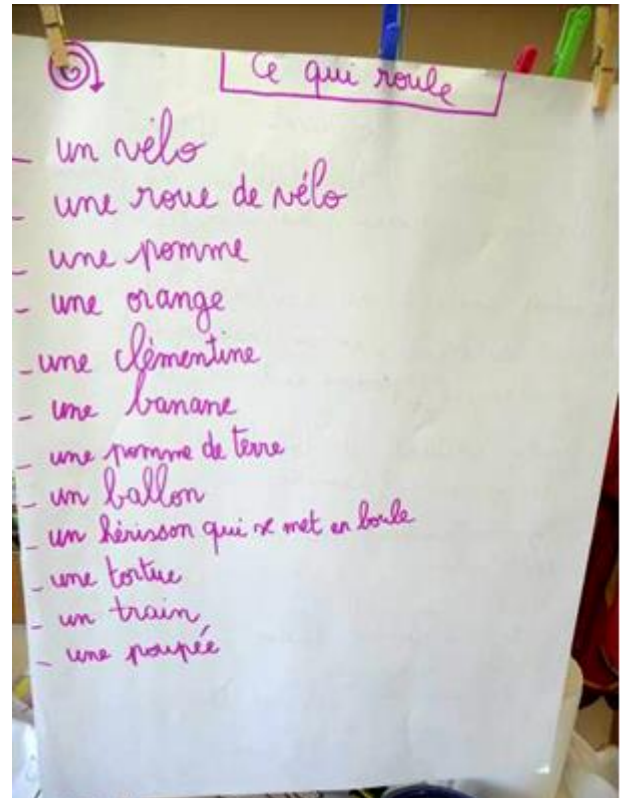 Ce qui roule
_ un vélo
_ une roue de vélo
_ une pomme
_ une orange
_ une clémentine
_ une banane
_ une pomme de terre
_ un ballon
_ un hérisson qui se met en boule
_ une tortue
_ un train
_ une poupée